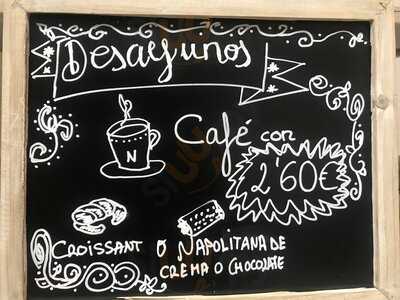 Desayunos
N
Café con
2'60€
CROISSANT O NAPOLITANA DE
CREMA O CHOCOLATE